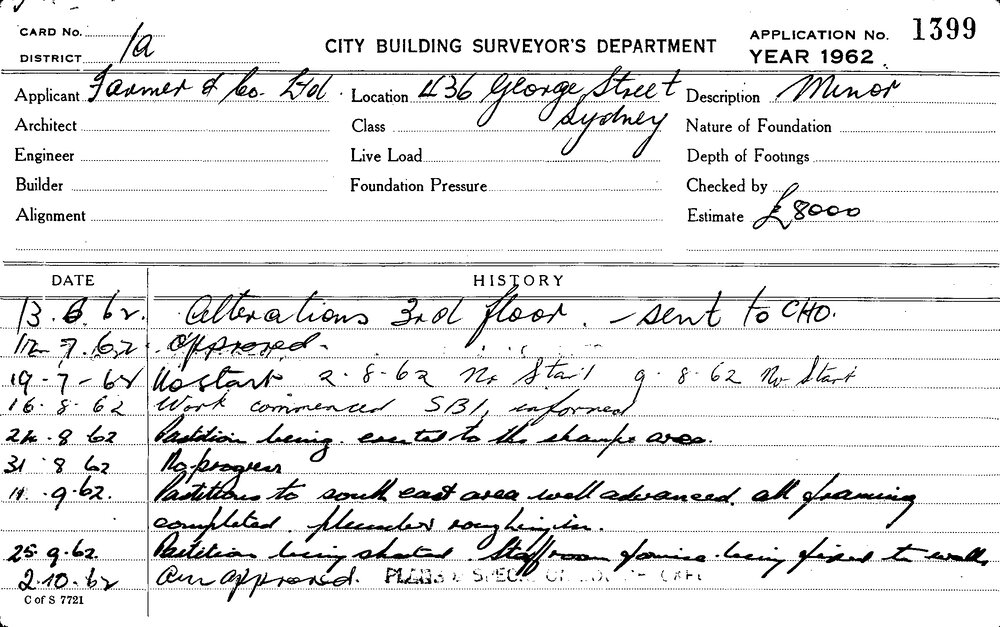 CARD No.
DISTRICT 1a
CITY BUILDING SURVEYOR'S DEPARTMENT
APPLICATION No. 1399
YEAR 1962
Applicant Farmer & Co. Ltd. Location 436 George Street Description Minor
Architect Class Sydney Nature of Foundation
Engineer Live Load Depth of Footings
Builder Foundation Pressure Checked by
Alignment Estimate £8000
DATE HISTORY
13.6.62. Alterations 3rd floor. - sent to CHO.
12.7.62. approved.
19-7-62 No start 2.8.62 No Start 9.8.62 No Start
16.8.62 Work commenced SBI, informed
24.8.62 Partition being erected to the area.
31 8 62 No progress
11.9.62. Partitions to south east area well advanced all framing
completed. plumber roughing in.
25.9.62. Partition being sheeted Staff room being fixed to walls
2.10.62 approved. PLANS & SPECS
C of S 7721